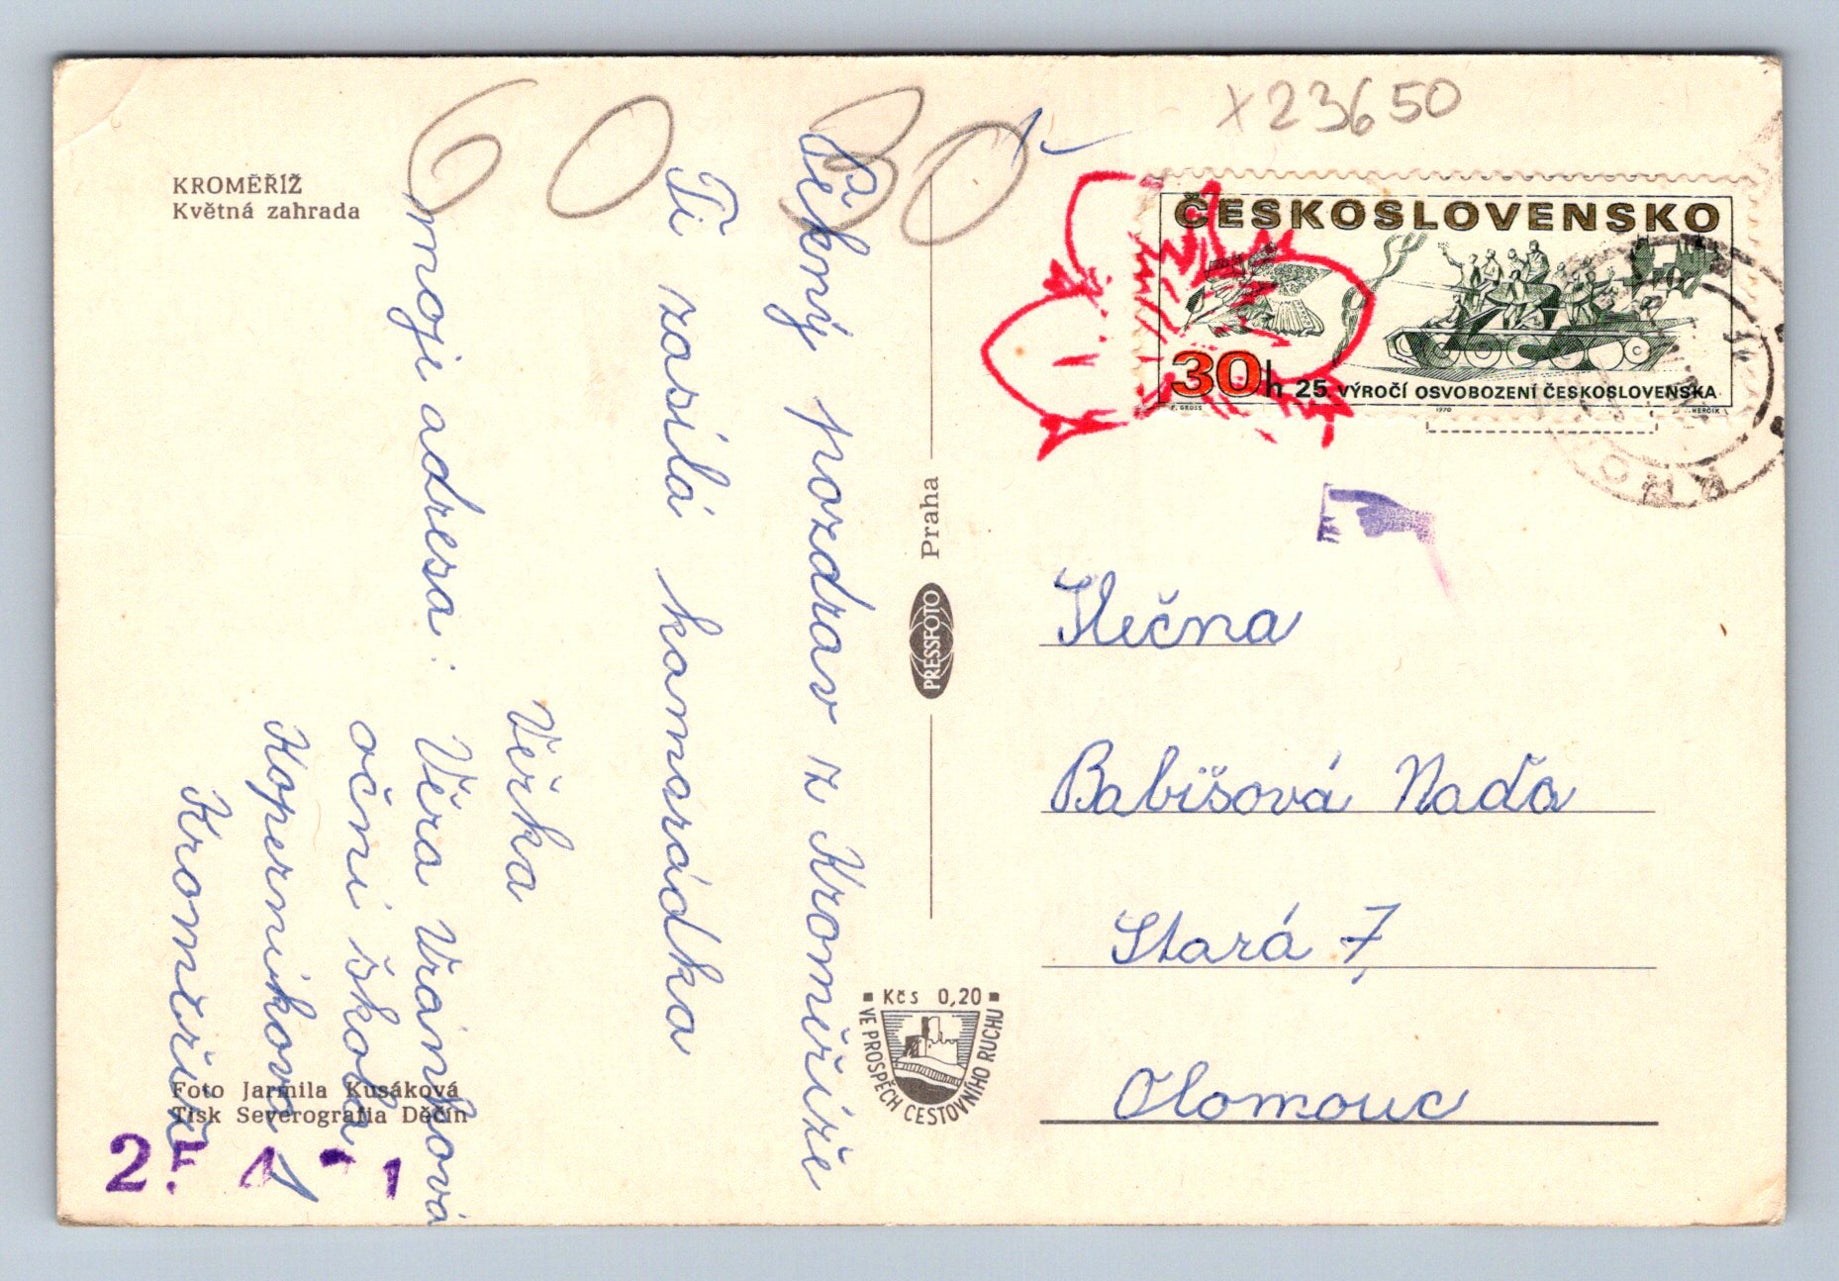 KROMĚŘÍŽ
Květná zahrada
60
30
x23650
Pěkný pozdrav z Kroměříže
Ti zasílá kamarádka
Věrka
moje adresa: Věra Vránková
oční škola
Kopernikova 1
Kroměříž
Foto Jarmila Kusáková
Tisk Severografia Děčín
PRESSFOTO Praha
Kčs 0,20
VE PROSPĚCH CESTOVNÍHO RUCHU
ČESKOSLOVENSKO
30h 25. VÝROČÍ OSVOBOZENÍ ČESKOSLOVENSKA
F. GROSS 1970 HERČÍK
Slečna
Babišová Naďa
Stará 7
Olomouc